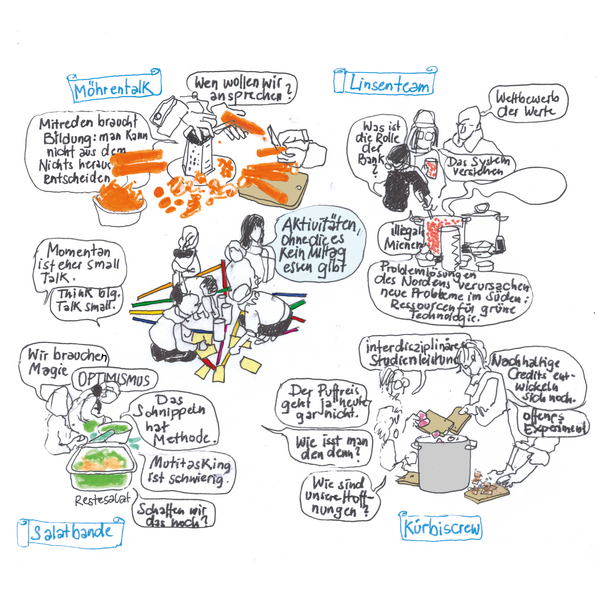 Möhrentalk
Wen wollen wir
ansprechen?
Mitreden braucht
Bildung: man kann
nicht aus dem
Nichts heraus
entscheiden
Linsenteam
Weltbewerb
der Werte
Was ist
die Rolle
der
Bank
?
Das System
verstehen
illegale
Mienen
Problemlösungen
des Nordens verursachen
neue Probleme im Süden:
Ressourcen für grüne
Technologie.
Aktivitäten,
ohne die es
kein Mittag
essen gibt
Momentan
ist eher small
Talk.
Think big.
Talk small.
Wir brauchen
Magie
OPTIMISMUS
Das
Schnippeln
hat
Methode.
Mutitasking
ist schwierig.
Restesalat
Schaffen wir
das noch?
Salatbande
interdisziplinäre
Studienleistung
Nachhaltige
Credits ent-
wickeln
sich noch.
offenes
Experiment
Der Puffreis
geht ja heute
gar nicht.
Wie isst man
den denn?
Wie sind
unsere Hoff-
nungen?
Kürbiscrew